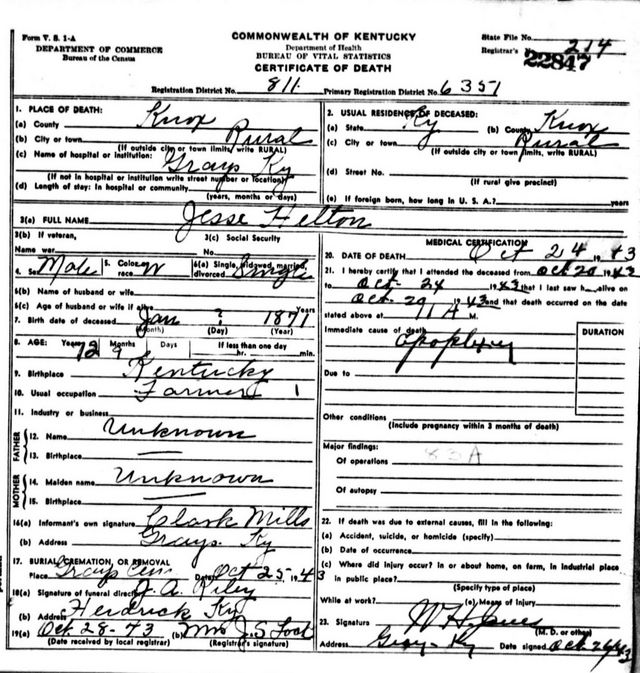 Form V. S. 1-A
DEPARTMENT OF COMMERCE
Bureau of the Census
COMMONWEALTH OF KENTUCKY
Department of Health
BUREAU OF VITAL STATISTICS
CERTIFICATE OF DEATH
State File No.
Registrar's No. 214
22847
Registration District No. 811 Primary Registration District No. 6351
1. PLACE OF DEATH:
(a) County Knox
(b) City or town Rural
(If outside city or town limits, write RURAL)
(c) Name of hospital or institution: Grays Ky
(If not in hospital or institution write street number or location)
(d) Length of stay: In hospital or community
(years, months or days)
2. USUAL RESIDENCE OF DECEASED:
(a) State Ky (b) County Knox
(c) City or town Rural
(If outside city or town limits, write RURAL)
(d) Street No.
(If rural give precinct)
(e) If foreign born, how long in U. S. A.? years
3(a) FULL NAME Jesse Helton
3(b) If veteran, 3(c) Social Security
Name war No.
4. Sex Male 5. Color or race W 6(a) Single, widowed, married, divorced Single
6(b) Name of husband or wife
6(c) Age of husband or wife if alive Years
7. Birth date of deceased Jan ? 1871
(Month) (Day) (Year)
8. AGE: Years 72 Months 9 Days If less than one day
hr. min.
9. Birthplace Kentucky
10. Usual occupation Farmer 1
11. Industry or business
FATHER
12. Name Unknown
13. Birthplace —
MOTHER
14. Maiden name Unknown
15. Birthplace —
16(a) Informant's own signature Clark Mills
(b) Address Grays Ky
17. BURIAL, CREMATION, OR REMOVAL
Place Grays Cem Date Oct 25 1943
18(a) Signature of funeral director J. A. Riley
(b) Address Hendrick Ky
19(a) Oct. 28-43 (b) Mrs J. S.
(Date received by local registrar) (Registrar's signature)
MEDICAL CERTIFICATION
20. DATE OF DEATH Oct 24 1943
21. I hereby certify that I attended the deceased from Oct 20 1943
to Oct. 24 1943 that I last saw h alive on
Oct. 1943 and that death occurred on the date
stated above at 11 A M.
Immediate cause of death Apoplexy
DURATION
Due to
Other conditions
(Include pregnancy within 3 months of death)
Major findings:
83A
Of operations
Of autopsy
22. If death was due to external causes, fill in the following:
(a) Accident, suicide, or homicide (specify)
(b) Date of occurrence
(c) Where did injury occur? In or about home, on farm, in industrial place
in public place?
(Specify type of place)
While at work? (e) Means of Injury
23. Signature W H
(M. D. or other)
Address Grays Ky Date signed Oct 26 43